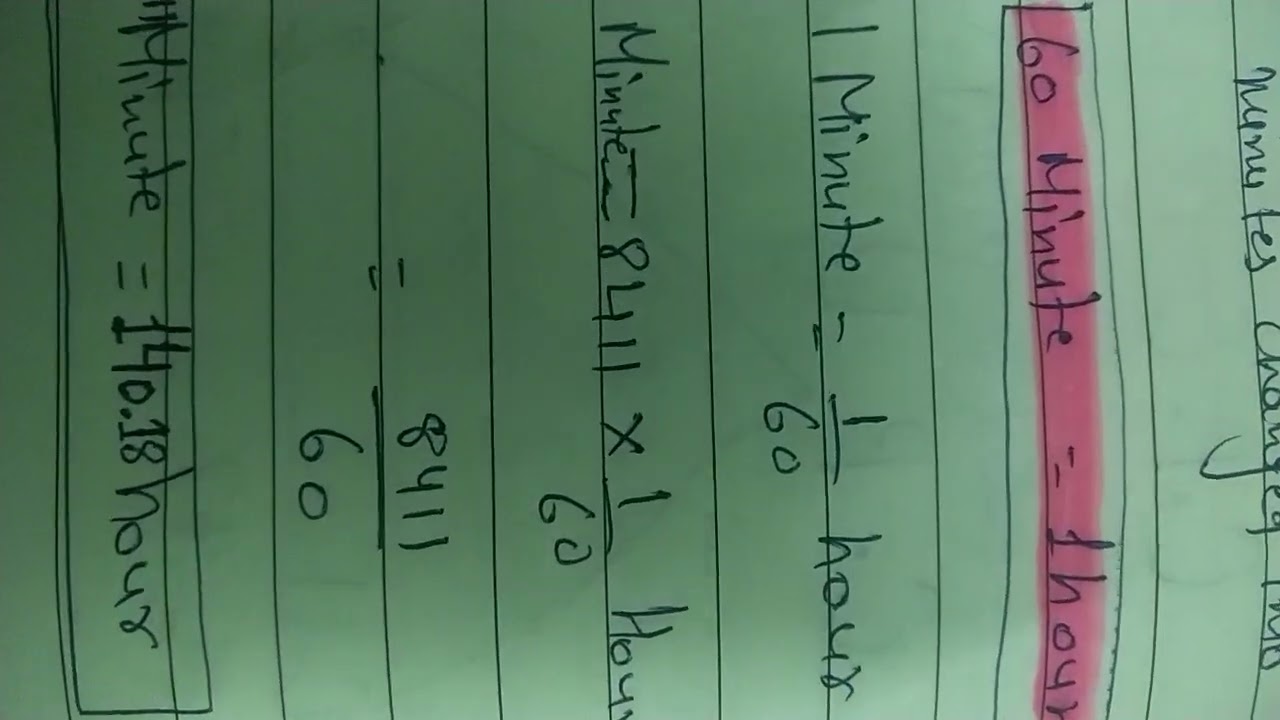 Minutes changed into
60 Minute = 1 hour
1 Minute = 1/60 hour
Minute = 8411 × 1/60 Hour
= 8411/60
Minute = 140.18 hour